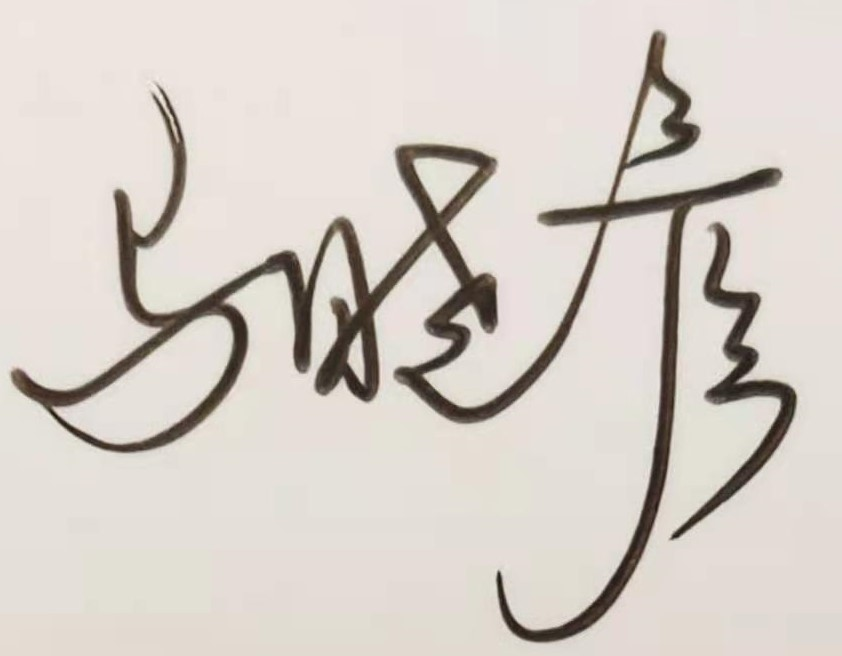 马晓彦